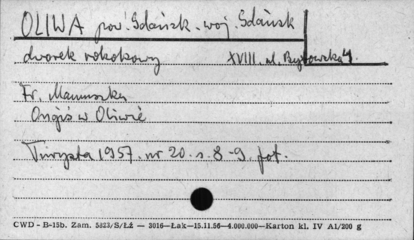 OLIWA pow. Gdańsk. woj. Gdańsk
dworek rokokowy XVIII. ul. Bytowska 4
Fr. Mamuszka
Ongiś w Oliwie
Turysta 1957. nr 20. s. 8-9. fot.
CWD - B-15b. Zam. 5823/S/Łż — 3016—Łak—15.11.56—4.000.000—Karton kl. IV A1/200 g